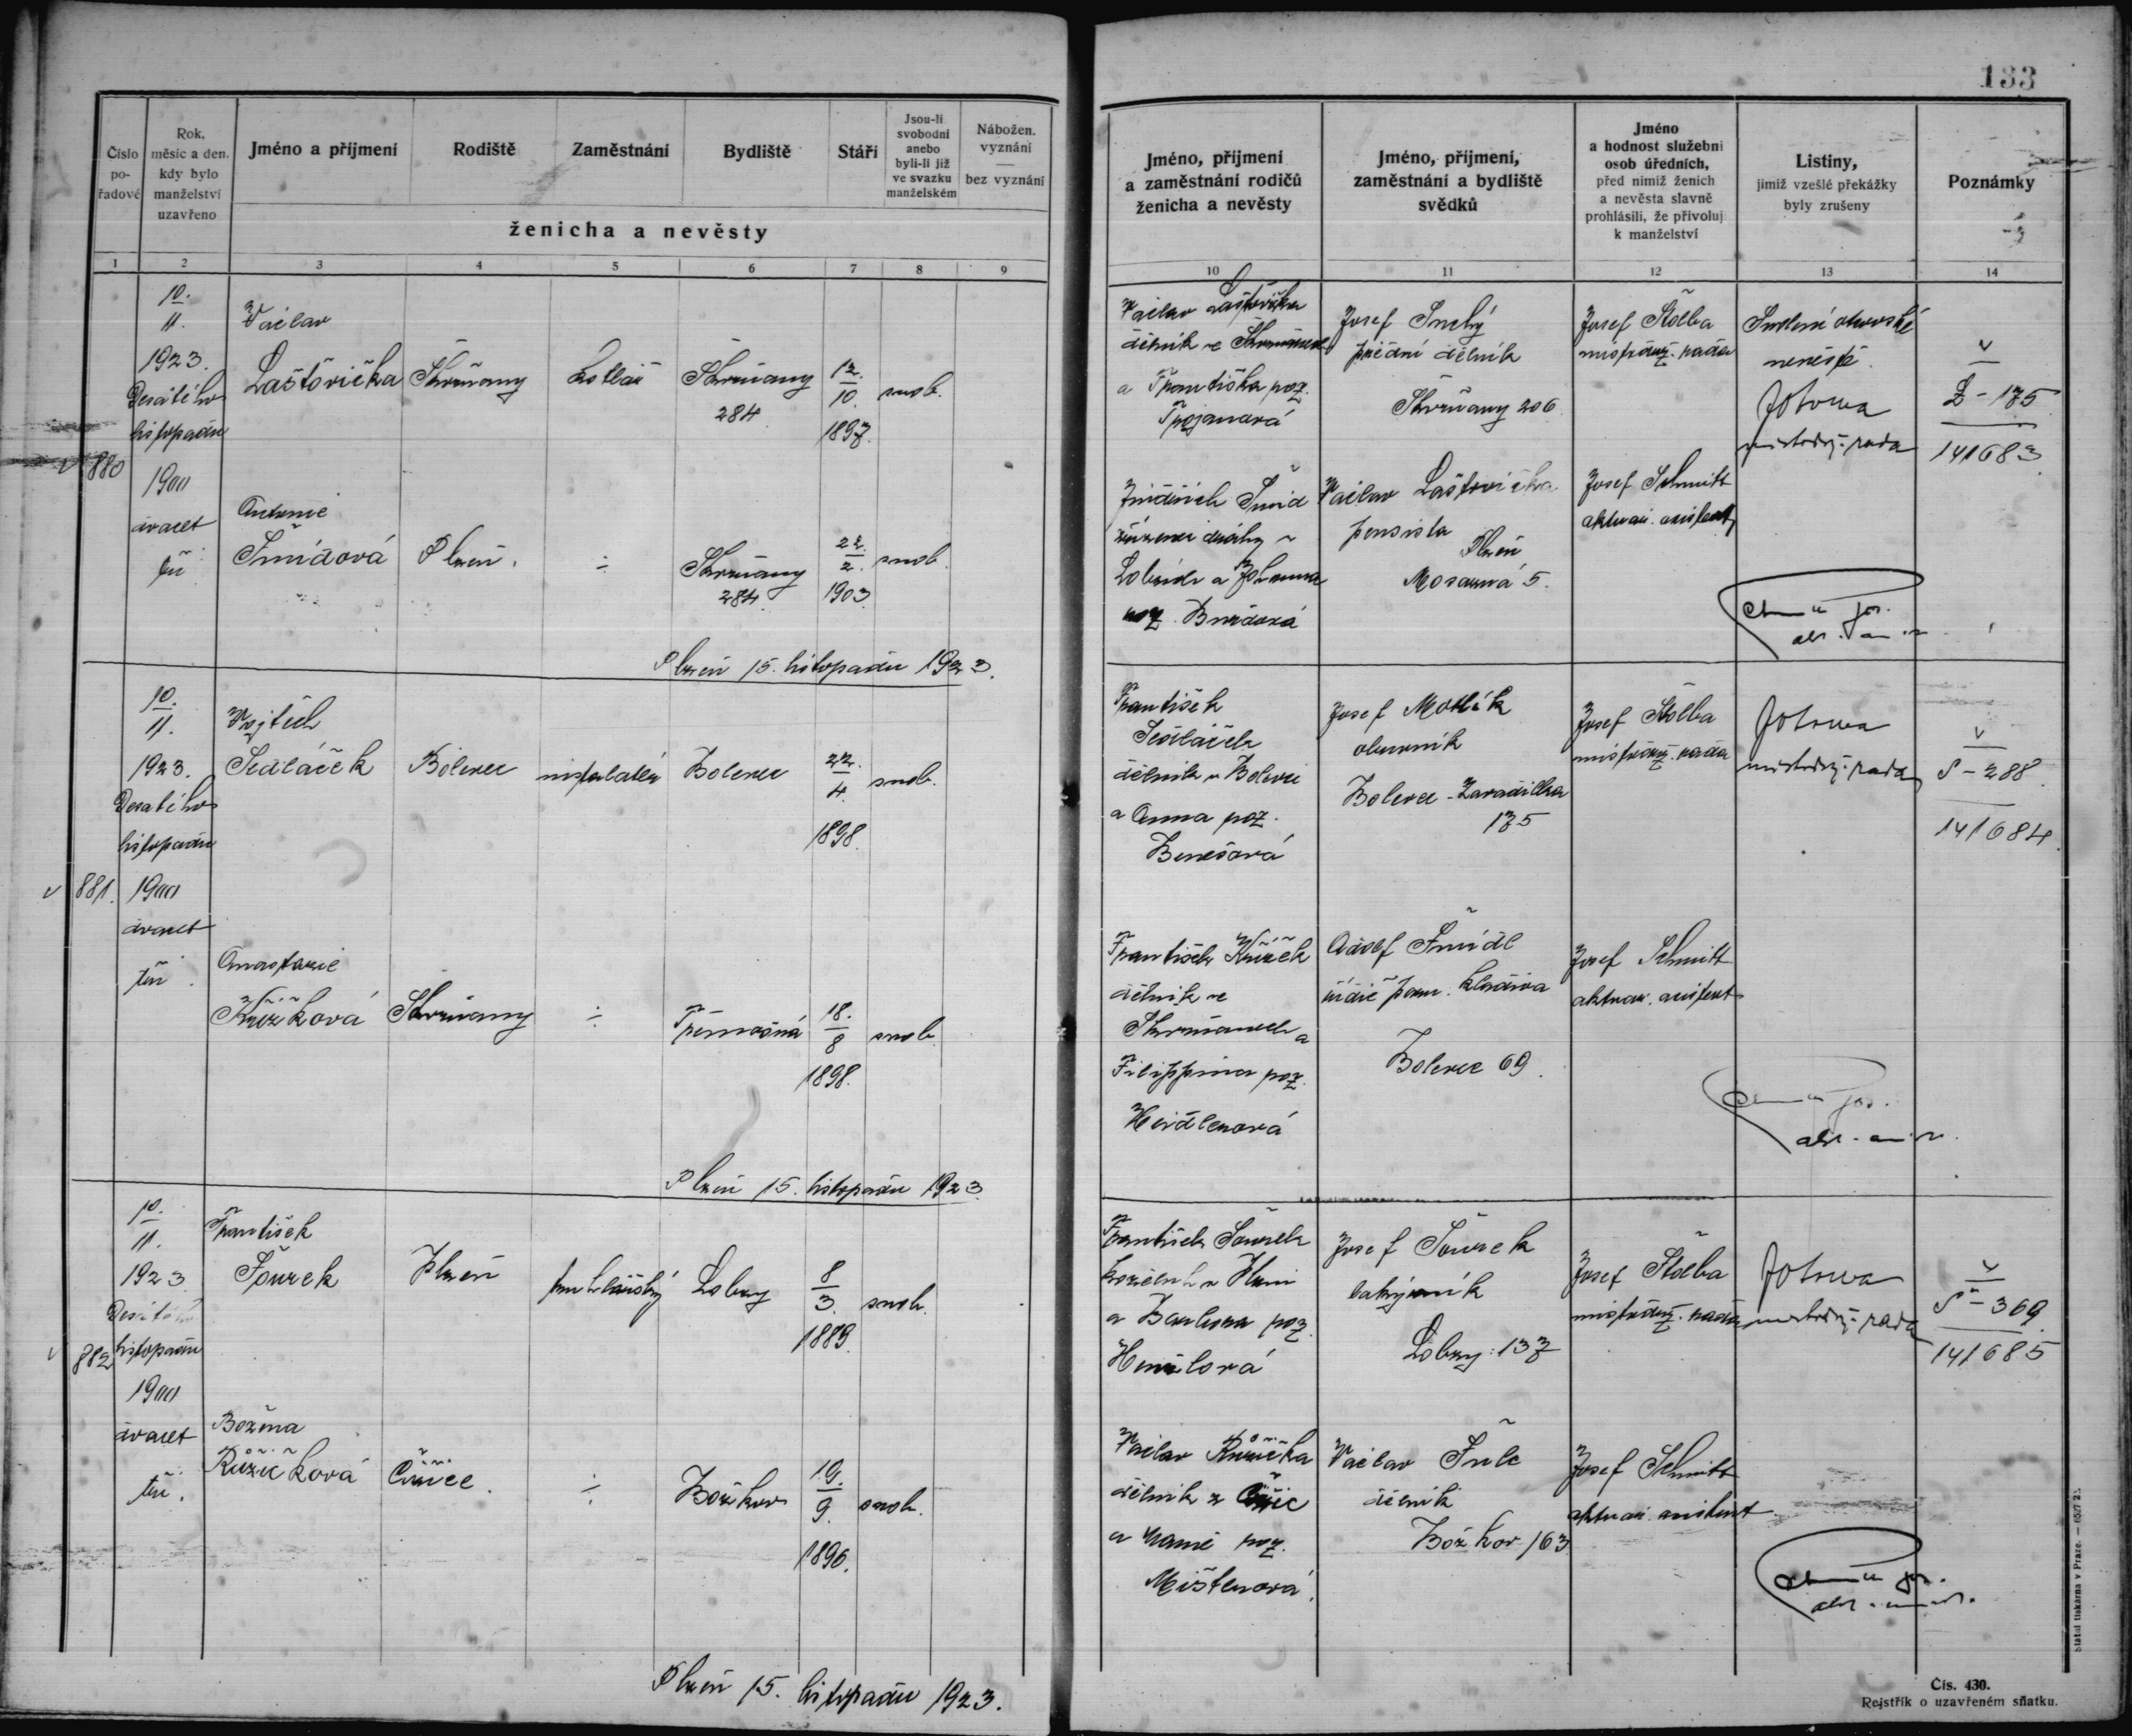 133
Číslo pořadové
Rok, měsíc a den, kdy bylo manželství uzavřeno
Jméno a příjmení
Rodiště
Zaměstnání
Bydliště
Stáří
Jsou-li svobodni anebo byli-li již ve svazku manželském
Nábožen. vyznání — bez vyznání
ženicha a nevěsty
Jméno, příjmení a zaměstnání rodičů ženicha a nevěsty
Jméno, příjmení, zaměstnání a bydliště svědků
Jméno a hodnost služební osob úředních, před nimiž ženich a nevěsta slavně prohlásili, že přivolují k manželství
Listiny, jimiž vzešlé překážky byly zrušeny
Poznámky
1 2 3 4 5 6 7 8 9 10 11 12 13 14
880
10. 11. 1923.
Desátého
listopadu
1900
dvacet
tři
Václav
Laštovička
Škvrňany
kotlář
Škvrňany
284
12. 10. 1897.
svob.
Václav Laštovička
dělník ve Škvrňanech
a Františka roz.
Trojanová
Josef Suchý
přední dělník
Škvrňany 206
Josef Štolba
místodrž. rada
Svolení otcovské
nevěstě.
místodrž. rada
L - 175
141683
Antonie
Šmídová
Plzeň.
÷
Škvrňany
284.
22. 2. 1903
svob.
Jindřich Šmíd
zřízenec dráhy v
Lobzích a Johanna
roz.
Václav Laštovička
pensista
Plzeň
5.
Josef Schmitt
aktuár. asistent
Plzeň 15. listopadu 1923.
881.
10. 11. 1923.
Desátého
listopadu
1900
dvacet
tři.
Vojtěch
Sedláček
Bolevec
Bolevec
22. 4. 1898.
svob.
František
Sedláček
dělník v Bolevci
a Anna roz.
Benešová
Josef Motlík
obuvník
Bolevec - Zavadilka
175
Josef Štolba
místodrž. rada
místodrž. rada
S - 288
141684.
Anastazie
Křížková
Škvrňany
÷
Třemošná
18. 8 1898.
svob.
František Křížek
dělník ve
Škvrňanech a
Filippina roz.
Heidlerová
Adolf Šmídl
řídič parn. kladiva
Bolevec 69.
Josef Schmitt
aktuár. asistent
Plzeň 15. listopadu 1923.
882
10. 11. 1923
Desátého
listopadu
1900
dvacet
tři.
František
Šourek
Plzeň
truhlářský
Lobzy
8 3. 1889.
svob.
František Šourek
v Plzni
a Barbora roz.
Josef Šourek
lakýrník
Lobzy: 137
Josef Štolba
místodrž. rada
místodrž. rada
Š - 369.
141685
Božena
Růžičková
Čižice.
÷
Božkov
19. 9. 1896.
svob.
Václav Růžička
dělník z Čižic
a Marie roz.
Václav Šulc
dělník
Božkov 163
Josef Schmitt
aktuár. asistent
Plzeň 15. listopadu 1923.
Státní tiskárna v Praze.
Čís. 430.
Rejstřík o uzavřeném sňatku.